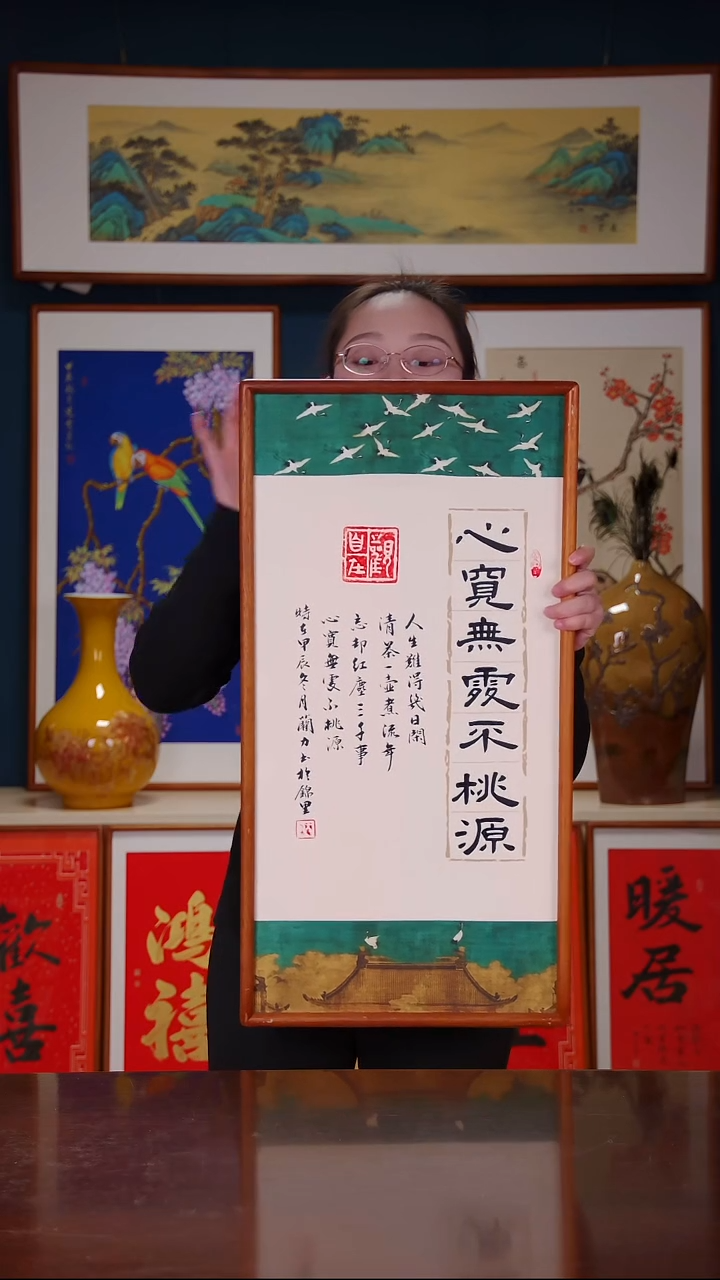 心寬無處不桃源
觀自在
人生難得幾日閑
清茶一壺煮流年
忘却紅塵三千事
心寬無處不桃源
時在甲辰冬月蘭力書於錦里
歡喜
鴻禧
暖居